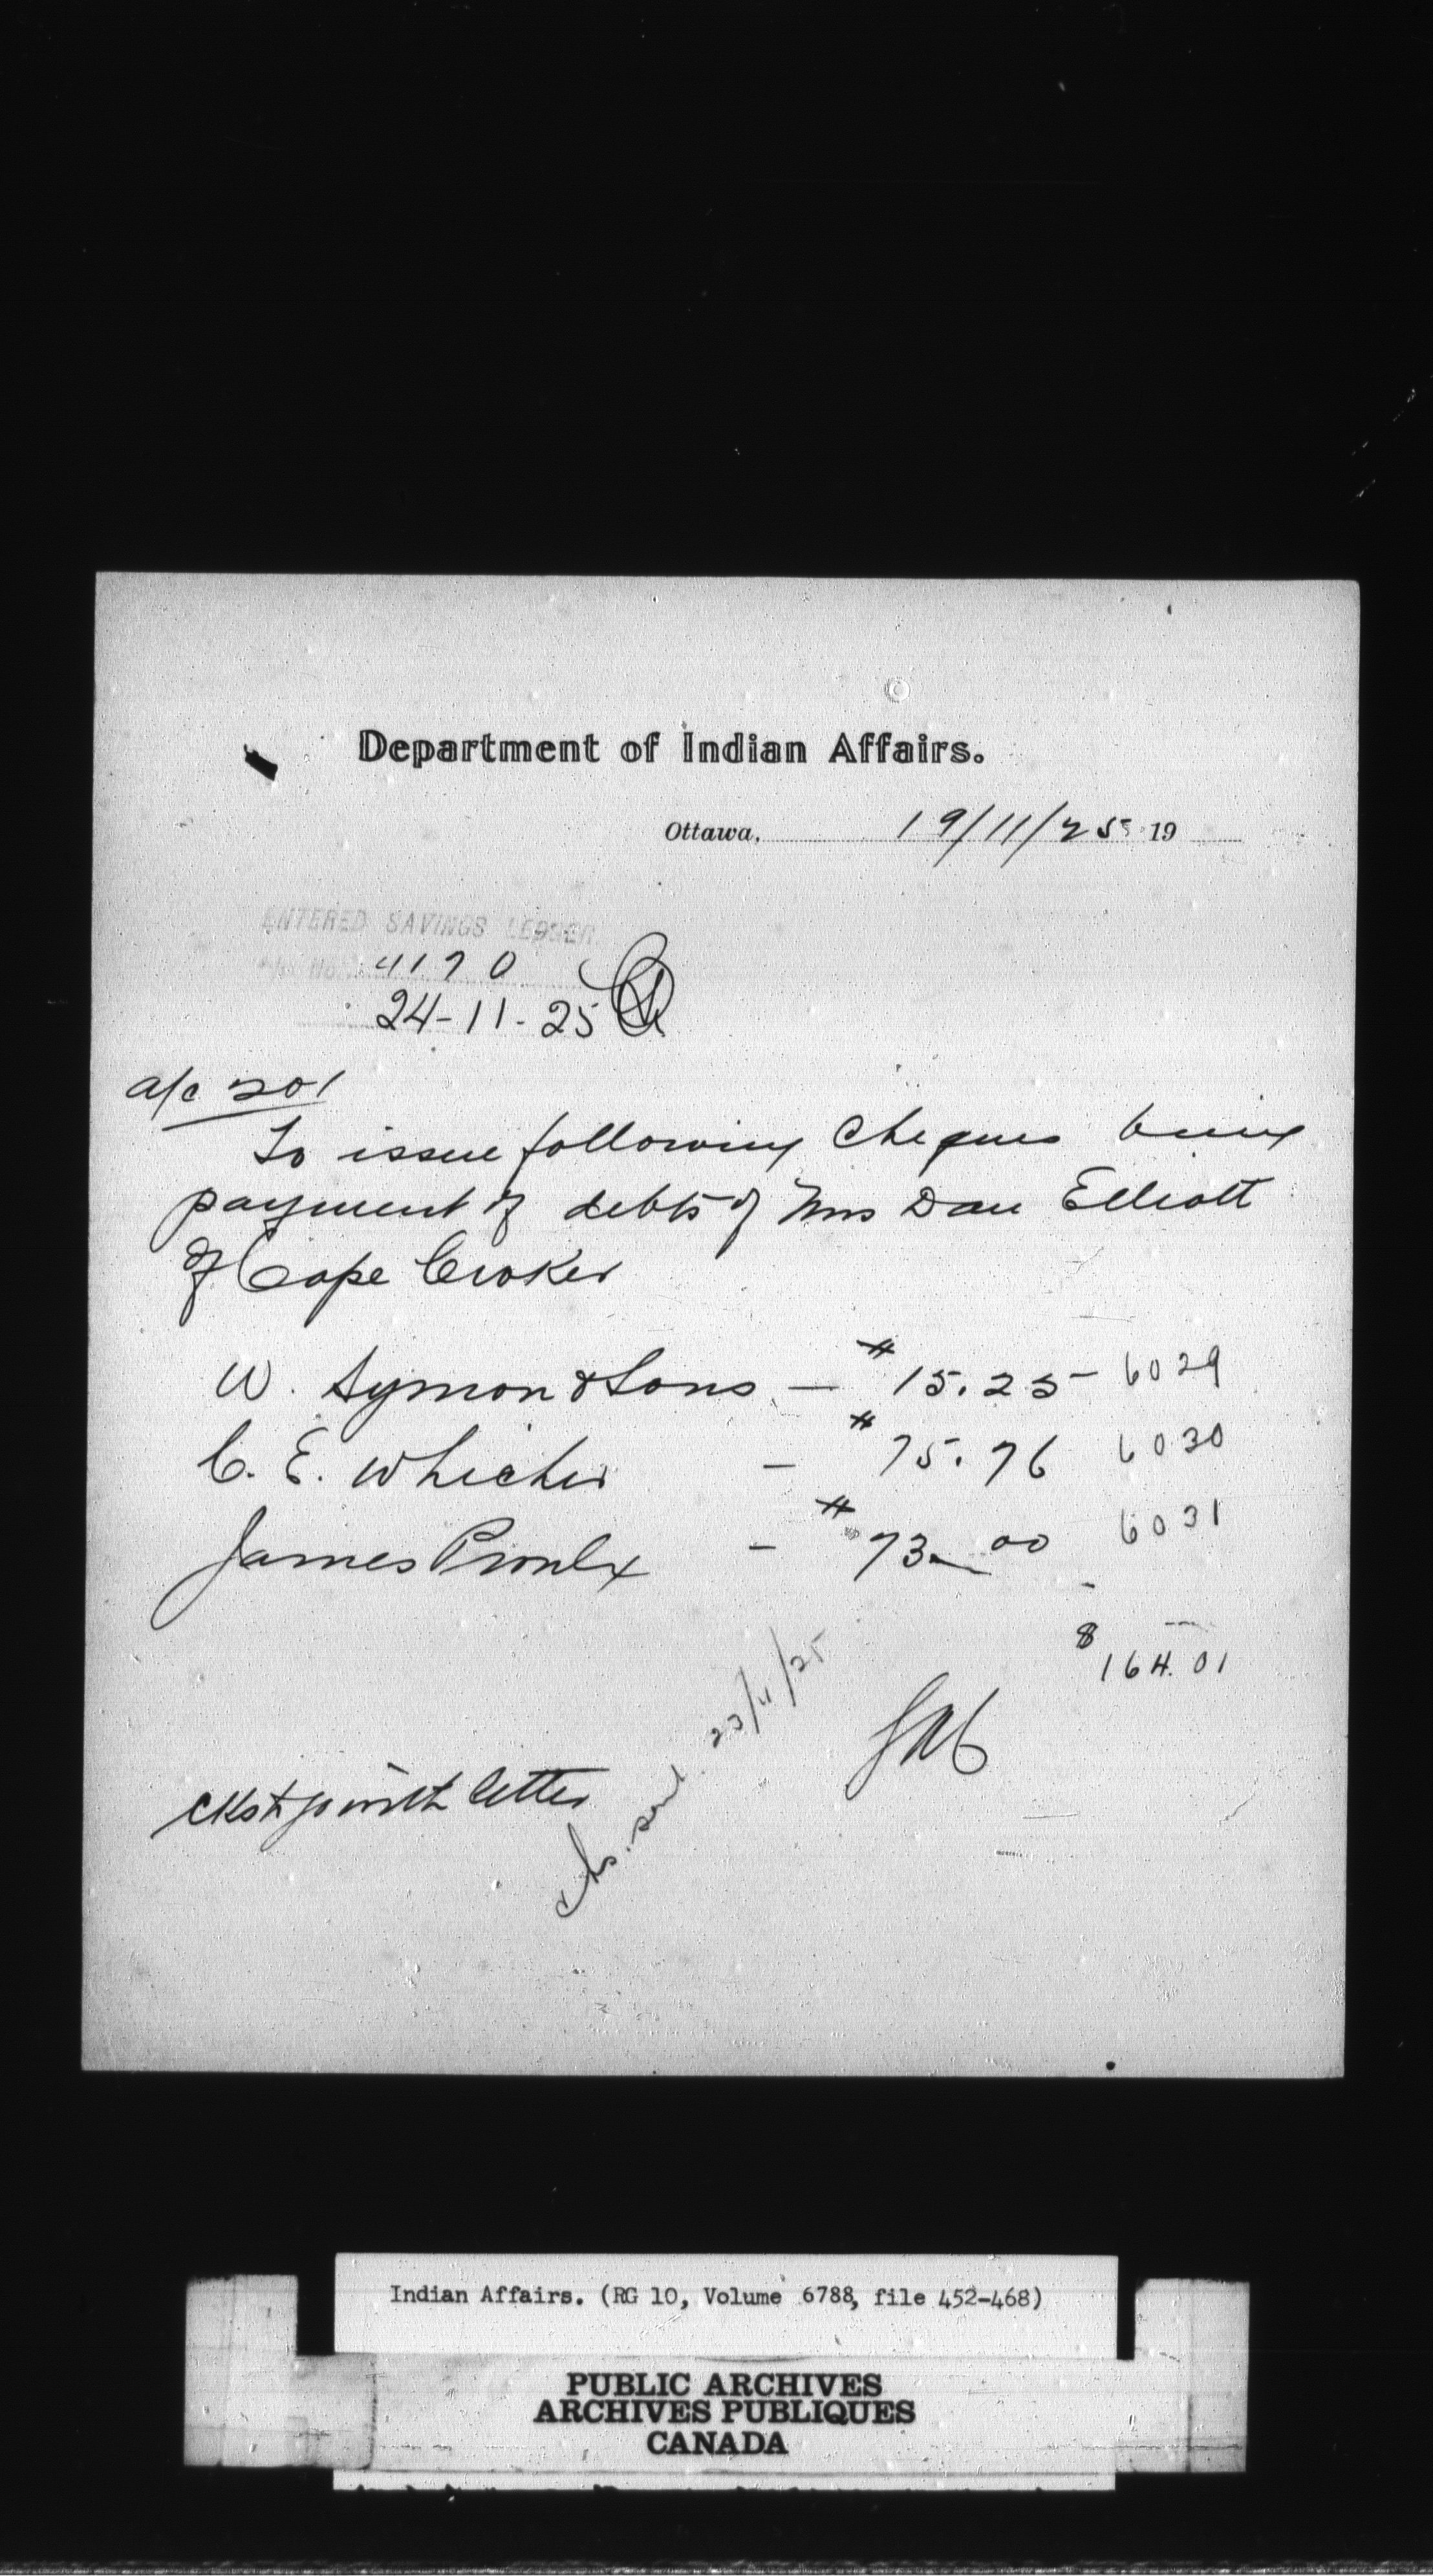 Department of Indian Affairs.
Ottawa, 19/11/25 19
ENTERED SAVINGS LEDGER
No. 4170
24-11-25
a/c 201
To issue following Cheques being
payment of debts of Mrs Dan Elliott
of Cape Croker
W. Symon & Sons — $15.25 6029
C. E. Whicher — $75.76 6030
James Proulx — $73.00 6031
$164.01
cks to go with letter
chs. sent. 23/11/25
Indian Affairs. (RG 10, Volume 6788, file 452-468)
PUBLIC ARCHIVES
ARCHIVES PUBLIQUES
CANADA